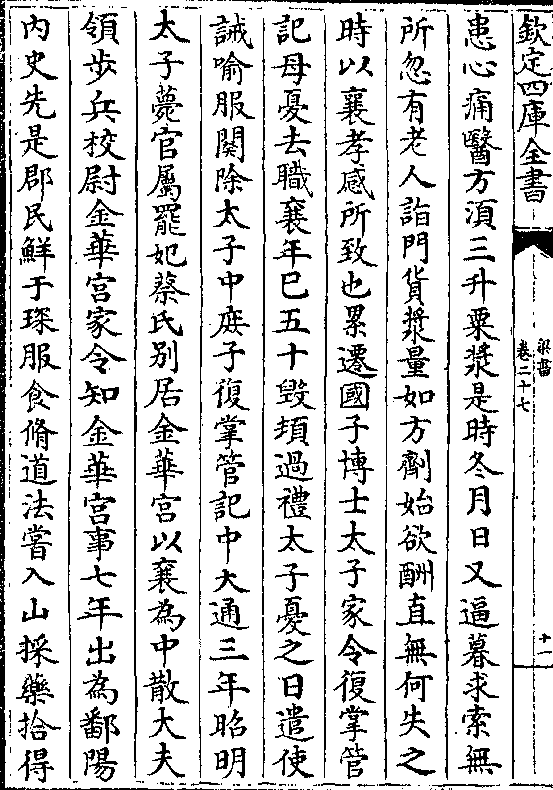 欽定四庫全書
梁書
卷二十七
十一
患心痛醫方須三升粟漿是時冬月日又逼暮求索無
所忽有老人詣門貨漿量如方劑始欲酬直無何失之
時以襄孝感所致也累遷國子博士太子家令復掌管
記母憂去職襄年已五十毀頓過禮太子憂之日遣使
誡喻服闋除太子中庶子復掌管記中大通三年昭明
太子薨官屬罷妃蔡氏别居金華宫以襄為中散大夫
領步兵校尉金華宫家令知金華宫事七年出為鄱陽
内史先是郡民鮮于琛服食脩道法嘗入山採藥拾得